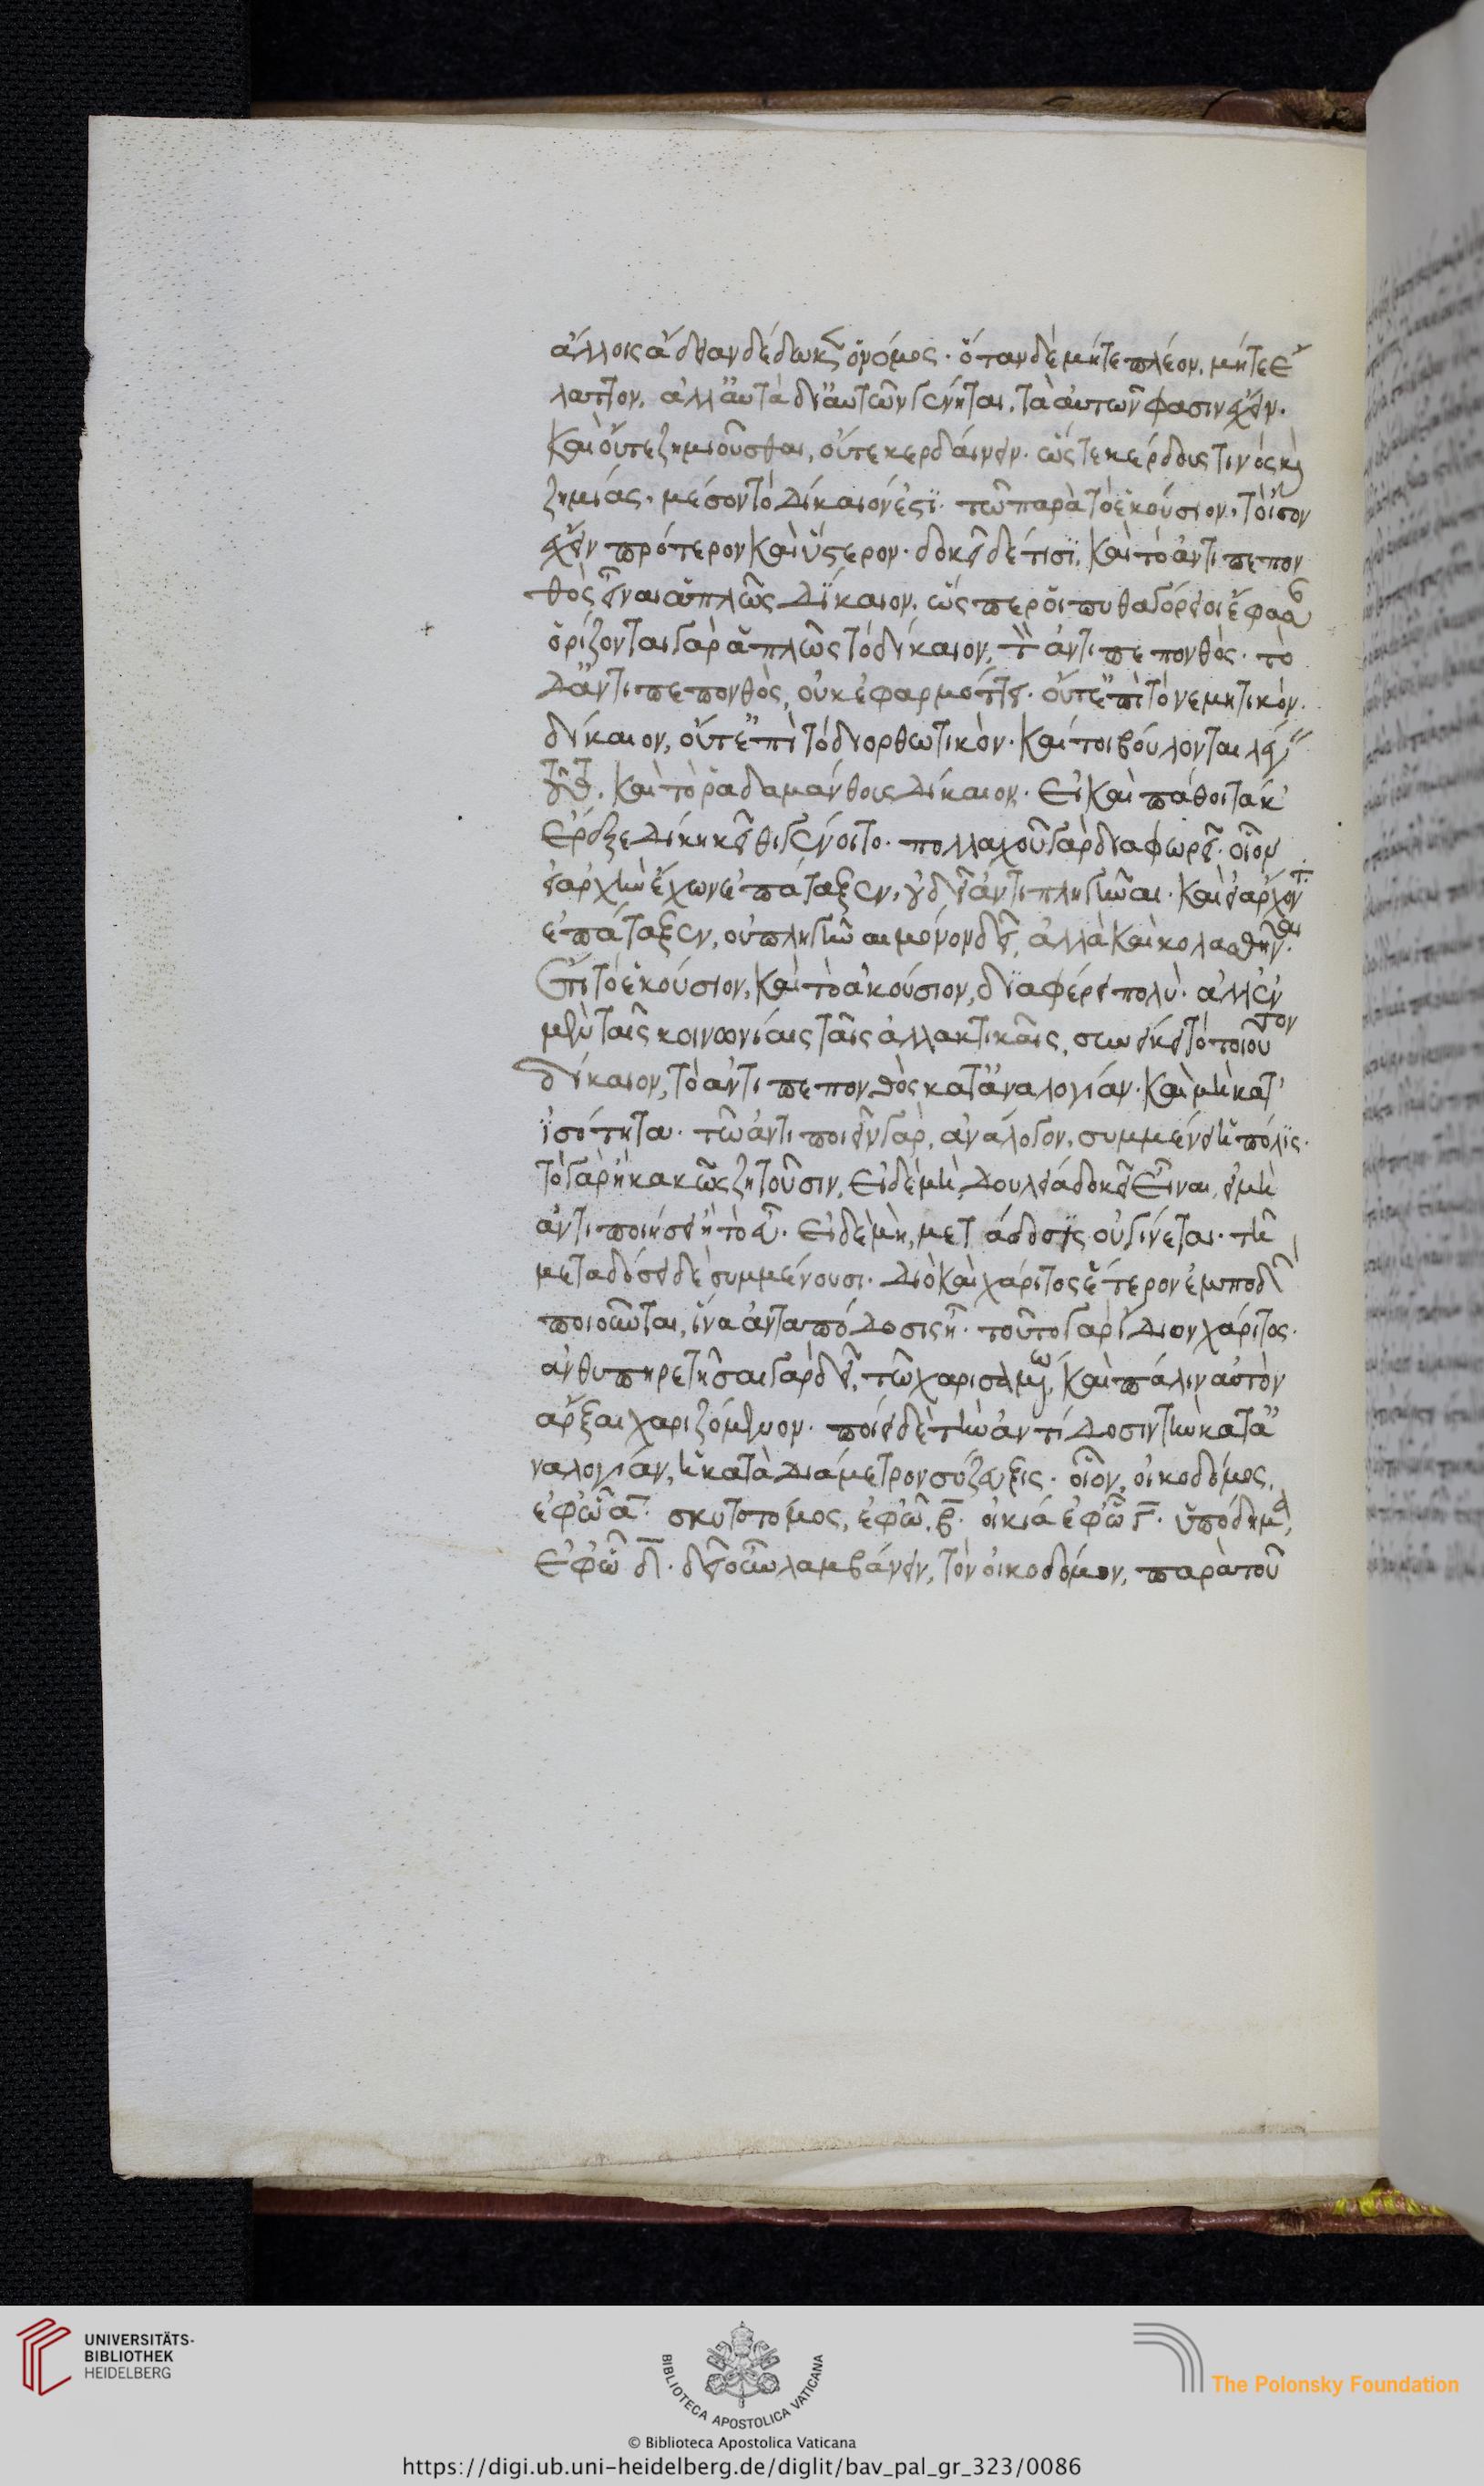 ἄλλοις ἄδειαν δέδωκεν ὁ νόμος· ὅταν δὲ μήτε πλέον, μήτε ἔ
λαττον, ἀλλ' αὐτὰ δι' αὐτῶν γένηται, τὰ αὑτῶν φασιν ἔχειν.
καὶ οὔτε ζημιοῦσθαι, οὔτε κερδαίνειν· ὥστε κέρδους τινός καὶ
ζημίας· μέσον τὸ δίκαιόν ἐστι τῶν παρὰ τὸ ἑκούσιον, τὸ ἴσον
ἔχειν πρότερον καὶ ὕστερον· δοκεῖ δέ τισι, καὶ τὸ ἀντιπεπον
θὸς εἶναι ἁπλῶς δίκαιον, ὥσπερ οἱ πυθαγόρειοι ἔφασαν
ὁρίζονται γὰρ ἁπλῶς τὸ δίκαιον, τὸ ἀντιπεπονθός· τὸ
δ' ἀντιπεπονθὸς, οὐκ ἐφαρμόττει· οὔτ' ἐπὶ τὸ νεμητικὸν
δίκαιον, οὔτ' ἐπὶ τὸ διορθωτικὸν· καίτοι βούλονται λέγειν
τοῦτο. καὶ τὸ ῥαδαμάνθους δίκαιον· εἰ καὶ πάθοι τά κ'
ἔρδξε δίκη κ' εἰθι γένοιτο· πολλαχοῦ γὰρ διαφωνεῖ· οἷον
εἰ ἀρχὴν ἔχων ἐπάταξεν, οὐ δεῖ ἀντιπληγῆναι· καὶ εἰ ἄρχοντα
ἐπάταξεν, οὐ πληγῆναι μόνον δεῖ, ἀλλὰ καὶ κολασθῆναι.
ἔτι τὸ ἑκούσιον, καὶ τὸ ἀκούσιον, διαφέρει πολύ· ἀλλ' ἐν
μὲν ταῖς κοινωνίαις ταῖς ἀλλακτικαῖς, συνέχει τὸ τοιοῦτον
δίκαιον, τὸ ἀντιπεπονθὸς κατ' ἀναλογίαν· καὶ μὴ κατ'
ἰσότητα· τῷ ἀντιποιεῖν γὰρ, ἀνάλογον, συμμένει ἡ πόλις·
τὸ γὰρ ἢ κακῶς ζητοῦσιν, εἰ δὲ μὴ, δουλεία δοκεῖ εἶναι, εἰ μὴ
ἀντιποιήσει ἢ τὸ εὖ· εἰ δὲ μὴ, μετάδοσις οὐ γίνεται· τῇ
μεταδόσει δὲ συμμένουσι· διὸ καὶ χάριτος ἕτερον ἐμποδὼν
ποιοῦνται, ἵνα ἀνταπόδοσις ᾖ· τοῦτο γὰρ ἴδιον χάριτος·
ἀνθυπηρετῆσαι γὰρ δεῖ, τῷ χαρισαμένῳ, καὶ πάλιν αὐτὸν
ἄρξαι χαριζόμενον· ποιεῖ δὲ τὴν ἀντίδοσιν τὴν κατ' ἀ
ναλογίαν, ἡ κατὰ διάμετρον σύζευξις· οἷον, οἰκοδόμος,
ἐφ' ᾧ α· σκυτοτόμος, ἐφ' ᾧ, β· οἰκία ἐφ' ᾧ γ· ὑπόδημα,
ἐφ' ᾧ δ· δεῖ οὖν λαμβάνειν, τὸν οἰκοδόμον, παρὰ τοῦ
UNIVERSITÄTS-
BIBLIOTHEK
HEIDELBERG
BIBLIOTECA APOSTOLICA VATICANA
The Polonsky Foundation
© Biblioteca Apostolica Vaticana
https://digi.ub.uni-heidelberg.de/diglit/bav_pal_gr_323/0086